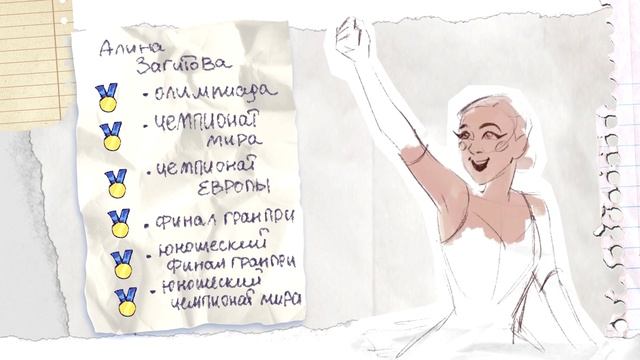 Алина
Загитова
• Олимпиада
• Чемпионат
мира
• Чемпионат
Европы
• Финал гранпри
• юношеский
финал гранпри
• юношеский
чемпионат мира